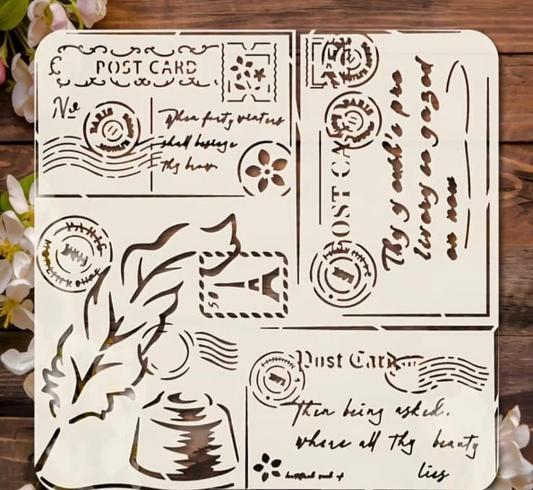 POST CARD
No
PARIS
When forty winters
shall besiege
thy brow
POST CA
Thy youth's pro
livery so gazed
on now
PARIS
50
Post Card
Then being asked.
where all thy beauty
lies